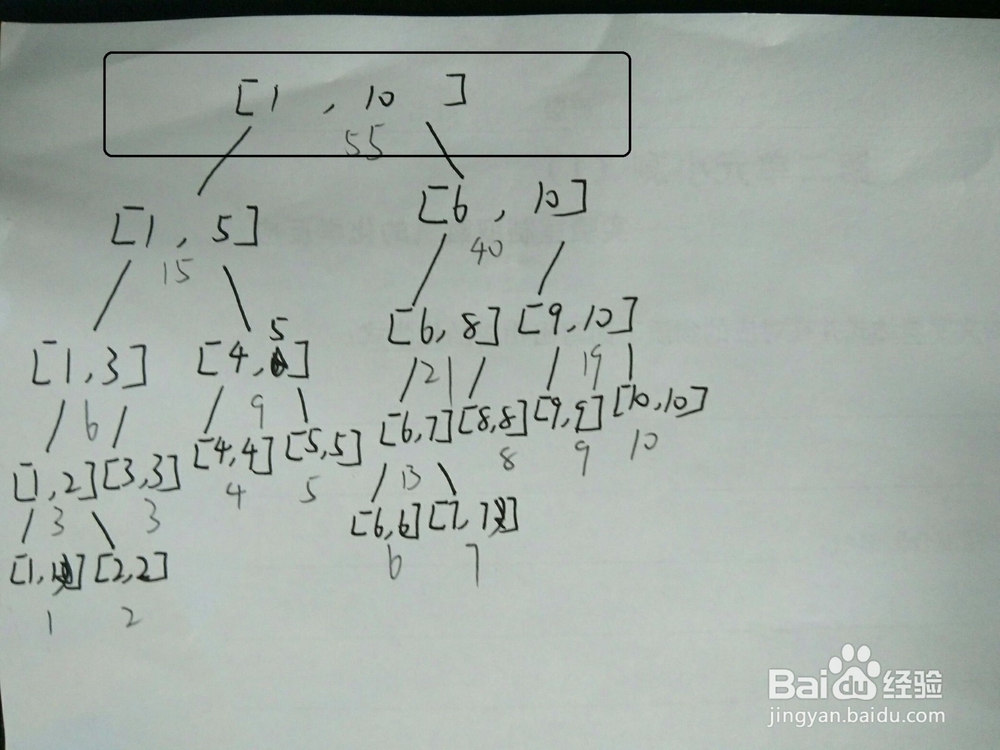 [1 , 10 ]
55
[1, 5] [6, 10]
15 40
[1,3] [4,5] [6,8] [9,10]
6 9 21 19
[1,2] [3,3] [4,4] [5,5] [6,7] [8,8] [9,9] [10,10]
3 3 4 5 13 8 9 10
[1,1] [2,2] [6,6] [7,7]
1 2 6 7
Baidu经验
jingyan.baidu.com